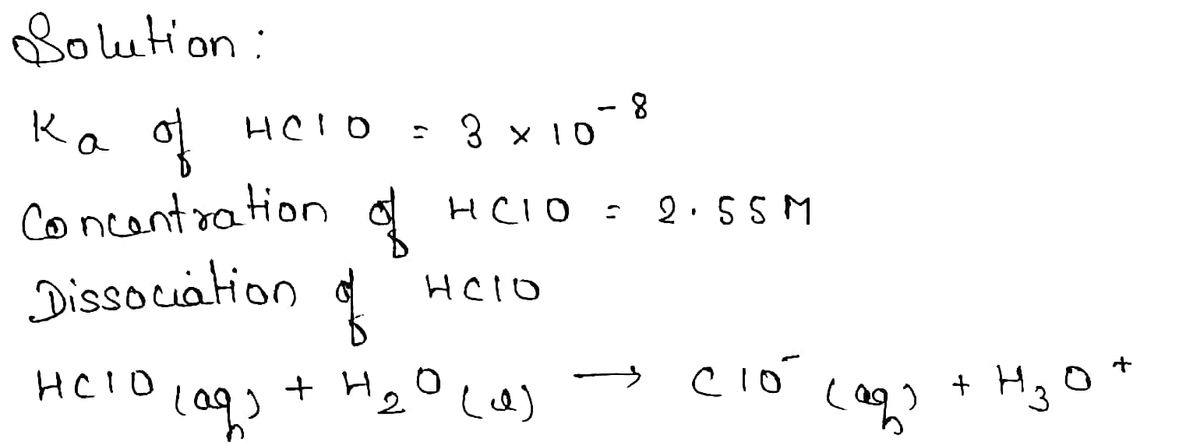 Solution:
Ka of HClO = 3 × 10⁻⁸
Concentration of HClO = 2.55M
Dissociation of HClO
HClO(aq) + H₂O(l) → ClO⁻(aq) + H₃O⁺